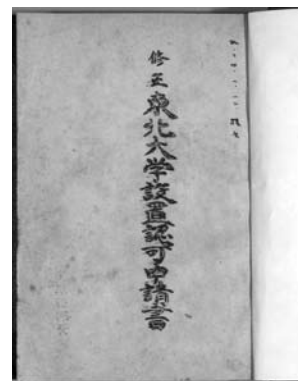 修正東北大学設置認可申請書